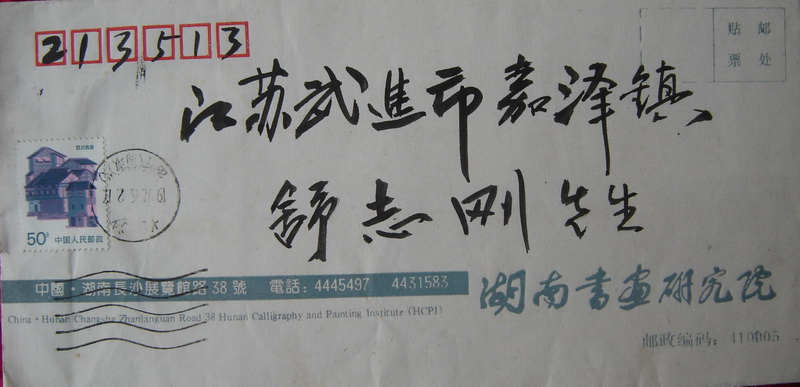 213513
贴 邮
票 处
江苏武進市嘉泽镇
舒志刚先生
50分 中国人民邮政
中國·湖南長沙展覽館路38號 電話：4445497 4431583
湖南书画研究院
China · Hunan Changsha Zhanlanguan Road 38 Hunan Calligraphy and Painting Institute (HCPI)
邮政编码：410005